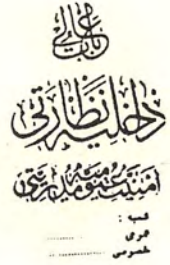 باب عالی
داخلیه نظارتی
امنیت عمومیه مدیریتی
شعبه :
عمومی
خصوصی